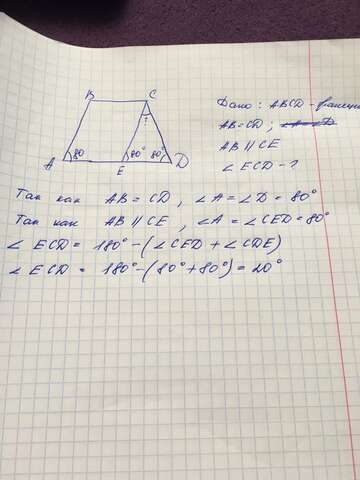 B C
Дано: ABCD -
AB=CD;
AB || CE
∠ ECD - ?
?
A 80 80° 80° D
E
Так как AB = CD, ∠A = ∠D = 80°
Так как AB || CE, ∠A = ∠CED = 80°
∠ ECD = 180° - (∠CED + ∠CDE)
∠ ECD = 180° - (80° + 80°) = 20°